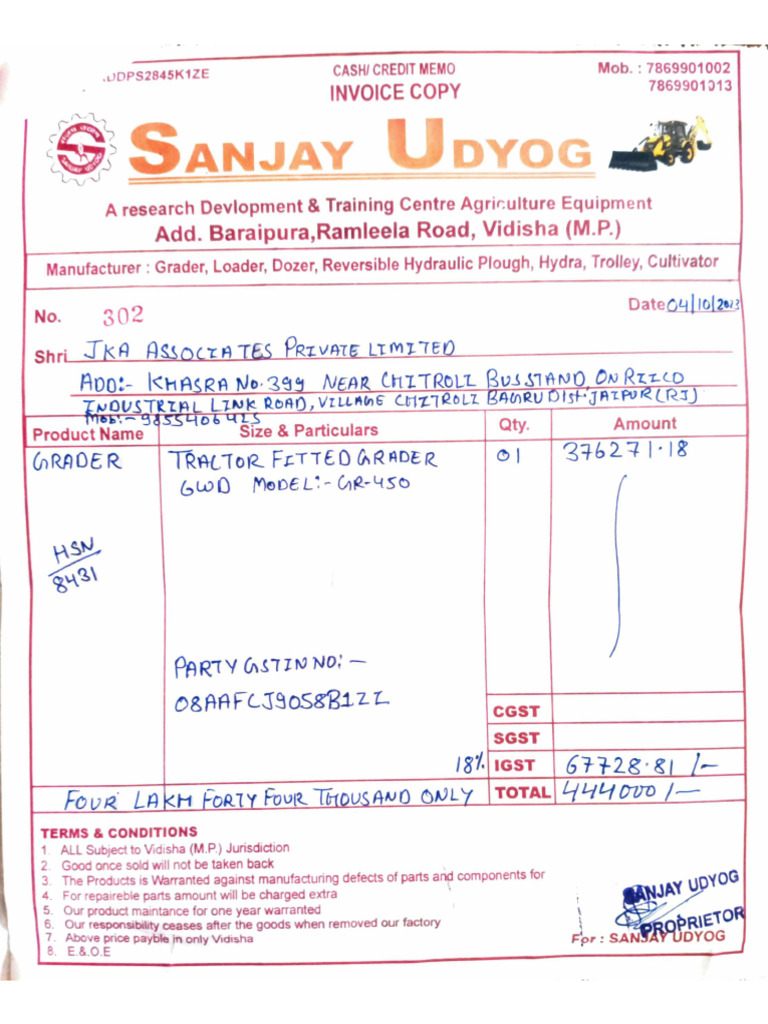 DDPS2845K1ZE
CASH/ CREDIT MEMO
INVOICE COPY
Mob. : 7869901002
7869901013
SANJAY UDYOG
SANJAY UDYOG
A research Devlopment & Training Centre Agriculture Equipment
Add. Baraipura,Ramleela Road, Vidisha (M.P.)
Manufacturer : Grader, Loader, Dozer, Reversible Hydraulic Plough, Hydra, Trolley, Cultivator
No. 302
Date 04/10/2023
Shri JKA ASSOCIATES PRIVATE LIMITED
ADD:- KHASRA NO.399 NEAR CHITROLI BUSSTAND, ON RIICO
INDUSTRIAL LINK ROAD, VILLAGE CHITROLI BAGRU DIST. JAIPUR (RJ)
Mob:- 9855406425
Product Name Size & Particulars Qty. Amount
GRADER TRACTOR FITTED GRADER 01 376271.18
GWD MODEL:- GR-450
HSN/8431
PARTY GSTIN NO:-
08AAFCJ9058B1ZZ
CGST
SGST
18% IGST 67728.81 /-
FOUR LAKH FORTY FOUR THOUSAND ONLY TOTAL 444000/-
TERMS & CONDITIONS
1. ALL Subject to Vidisha (M.P.) Jurisdiction
2. Good once sold will not be taken back
3. The Products is Warranted against manufacturing defects of parts and components for
4. For repaireble parts amount will be charged extra
5. Our product maintance for one year warranted
6. Our responsibility ceases after the goods when removed our factory
7. Above price payble in only Vidisha
8. E.&.O.E
SANJAY UDYOG
PROPRIETOR
For : SANJAY UDYOG